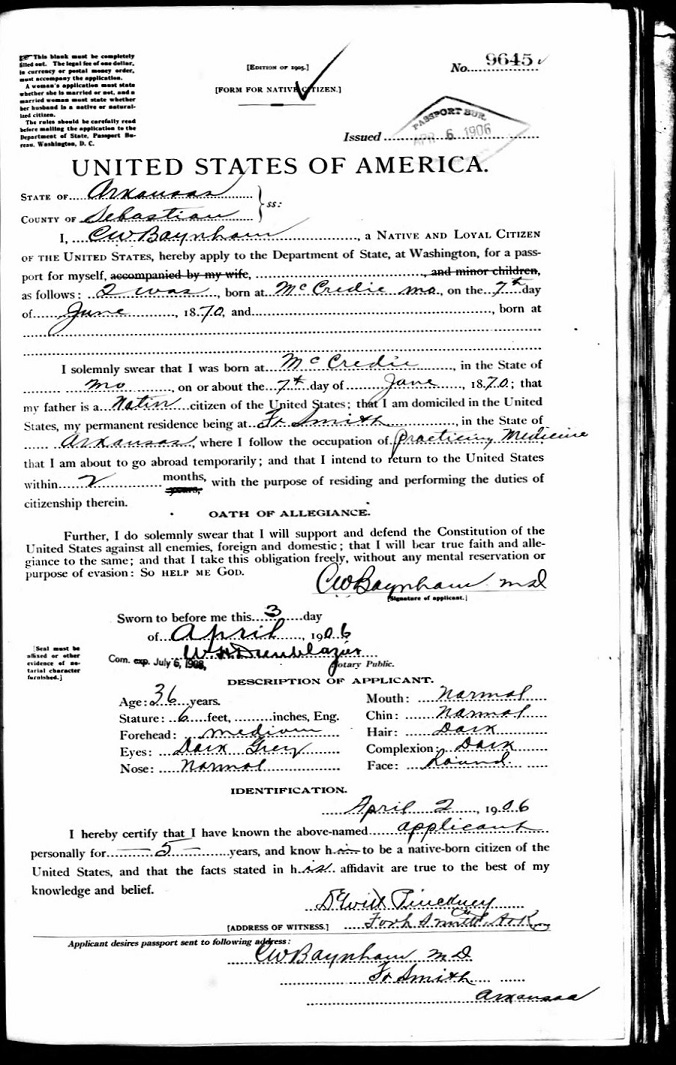 This blank must be completely
filled out. The legal fee of one dollar,
in currency or postal money order,
must accompany the application.
A woman's application must state
whether she is married or not, and a
married woman must state whether
her husband is a native or natural-
ized citizen.
The rules should be carefully read
before mailing the application to the
Department of State, Passport Bu-
reau, Washington, D. C.
[EDITION OF 1905.]
[FORM FOR NATIVE CITIZEN.]
No. 9645
Issued
PASSPORT BUR.
APR 6 1906
UNITED STATES OF AMERICA.
STATE OF Arkansas
COUNTY OF Sebastian } ss:
I, CW Baynham, a NATIVE AND LOYAL CITIZEN
OF THE UNITED STATES, hereby apply to the Department of State, at Washington, for a pass-
port for myself, accompanied by my wife, , and minor children,
as follows: I was, born at McCredie mo., on the 7th day
of June, 1870, and , born at
I solemnly swear that I was born at McCredie, in the State of
mo, on or about the 7th day of June, 1870; that
my father is a Nativ citizen of the United States; that I am domiciled in the United
States, my permanent residence being at Ft Smith, in the State of
Arkansas, where I follow the occupation of practicing Medicine
that I am about to go abroad temporarily; and that I intend to return to the United States
within 2 months, years, with the purpose of residing and performing the duties of
citizenship therein.
OATH OF ALLEGIANCE.
Further, I do solemnly swear that I will support and defend the Constitution of the
United States against all enemies, foreign and domestic; that I will bear true faith and alle-
giance to the same; and that I take this obligation freely, without any mental reservation or
purpose of evasion: SO HELP ME GOD.
CW Baynham MD
[Signature of applicant.]
Sworn to before me this 3 day
of April, 1906
[Seal must be
affixed or other
evidence of no-
tarial character
furnished.]
Com. exp. July 6, 1908, Notary Public.
DESCRIPTION OF APPLICANT.
Age: 36 years.
Stature: 6 feet, inches, Eng.
Forehead: medium
Eyes: Dark Grey
Nose: Normal
Mouth: Normal
Chin: Normal
Hair: Dark
Complexion: Dark
Face: Round
IDENTIFICATION.
April 2, 1906
I hereby certify that I have known the above-named applicant
personally for 5 years, and know him to be a native-born citizen of the
United States, and that the facts stated in his affidavit are true to the best of my
knowledge and belief.
DeWitt Pinckney
[ADDRESS OF WITNESS.] Forh Smith Ark
Applicant desires passport sent to following address:
CW Baynham MD
Ft Smith
Arkansas